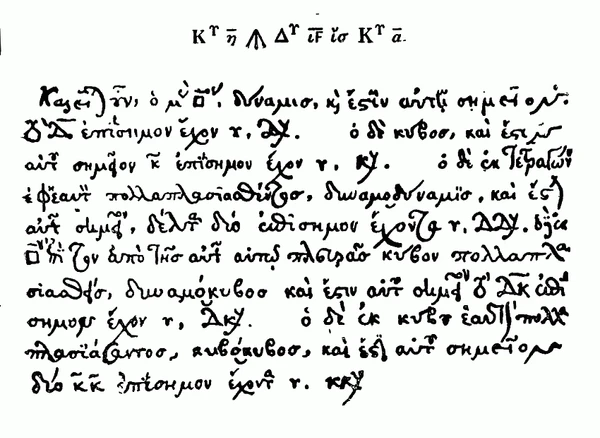 Κᵞ η̄ ⩚ Δᵞ ι̅ϝ̅ ἴσ Κᵞ ᾱ.
Καλεῖ οὖν, ὁ μν □ος, δύναμισ, κὶ ἔστιν αὐτῆ σημεῖον
τὸ Δ̄ ἐπίσημον ἔχον υ, Δυ. ὁ δὲ κυβοσ, καὶ ἔστιν
αὐτ σημεῖον κ̄ ἐπίσημον ἔχον υ, κυ. ὁ δὲ ἐκ τετραγών
ἐφ ἑαυτ πολλαπλασιασθέντοσ, δυναμοδύναμισ, καὶ ἔστ
αὐτ σημεῖον, δέλτα δύο ἐπίσημον ἔχοντα υ, ΔΔυ. ὁ δὲ ἐκ
□ου ἐπὶ τὸν ἀπὸ τῆσ αὐτ αὐτῷ πλευρᾶσ κύβον πολλαπλα
σιασθέντοσ, δυναμόκυβοσ καὶ ἔστιν αὐτ σημεῖον τὸ Δ̄κ̄ ἐπί
σημον ἔχον υ, Δκυ. ὁ δὲ ἐκ κυβου ἑαυτὸν πολλα
πλασιάσαντοσ, κυβόκυβοσ, καὶ ἔστ αὐτ σημεῖον
δύο κ̄κ̄ ἐπίσημον ἔχοντα υ. κκυ